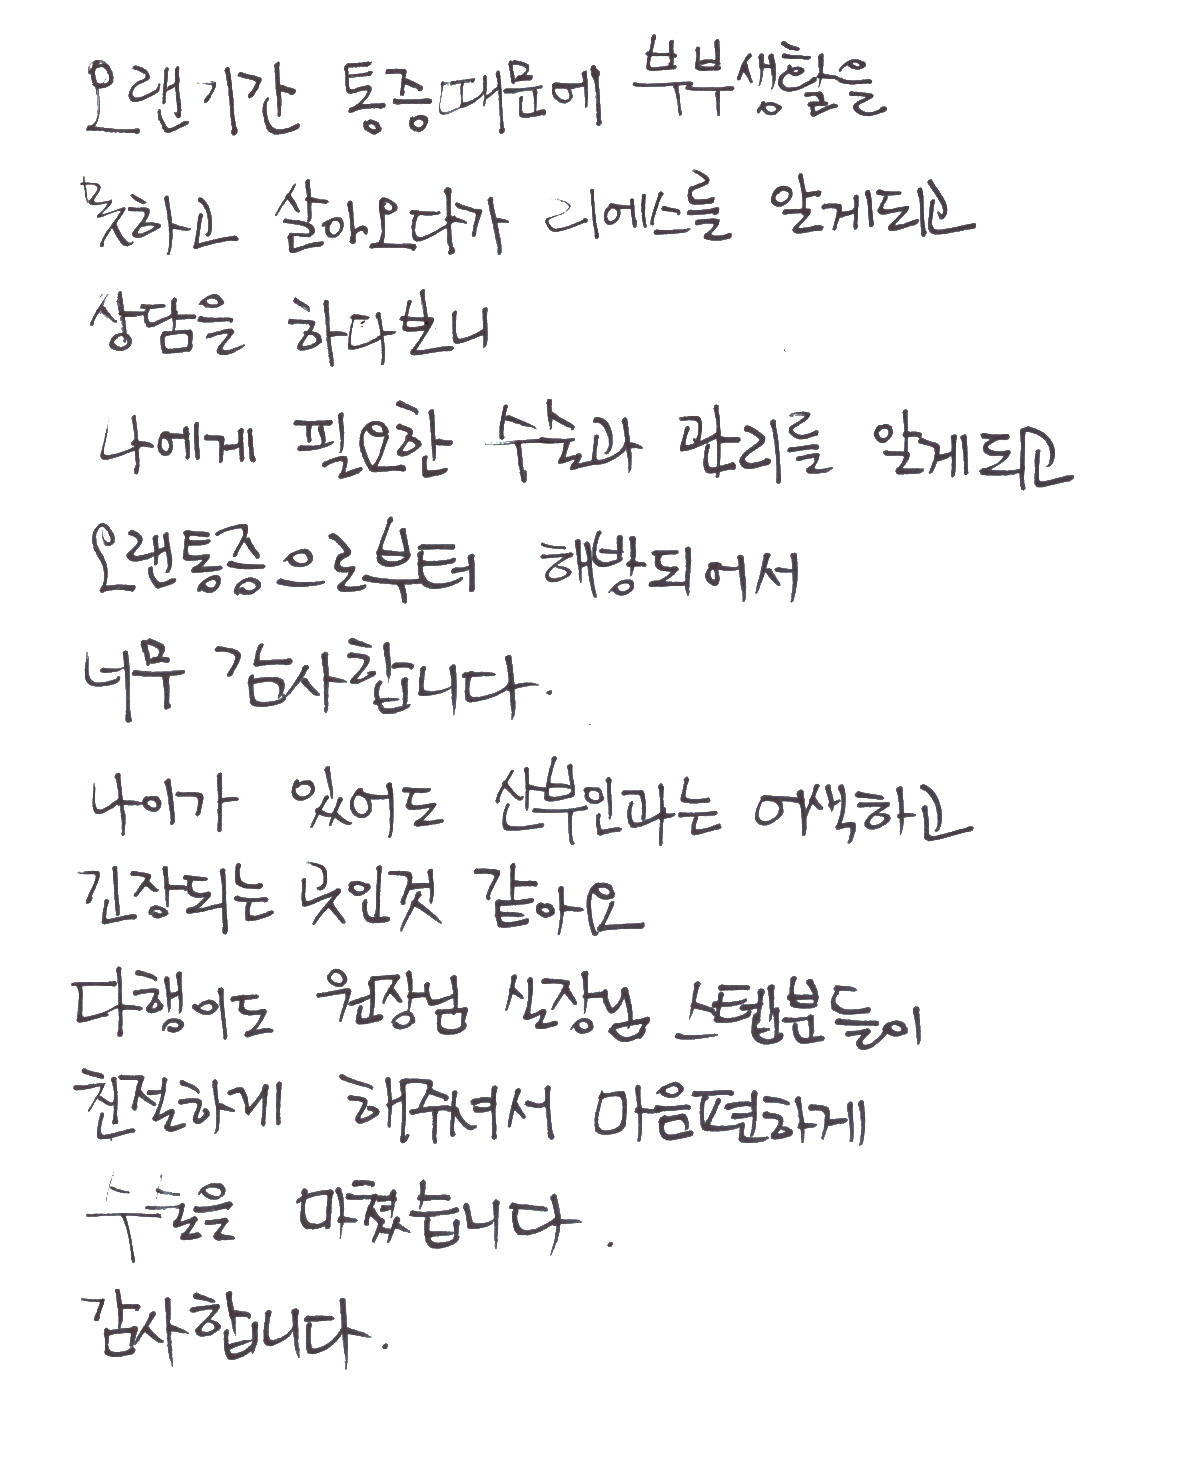 오랜기간 통증때문에 부부생활을
못하고 살아오다가 리에스를 알게되고
상담을 하다보니
나에게 필요한 수술과 관리를 알게되고
오랜통증으로부터 해방되어서
너무 감사합니다.
나이가 있어도 산부인과는 어색하고
긴장되는 곳인것 같아요
다행이도 원장님 실장님 스텝분들이
친절하게 해주셔서 마음편하게
수술을 마쳤습니다.
감사합니다.